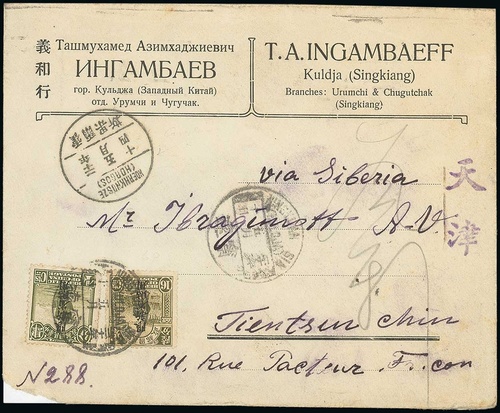 義和行
Ташмухамед Азимхаджиевич
ИНГАМБАЕВ
гор. Кульджа (Западный Китай)
отд. Урумчи и Чугучак.
T. A. INGAMBAEFF
Kuldja (Singkiang)
Branches: Urumchi & Chugutchak
(Singkiang)
(HORGOS)
via Siberia
天津
Mr. Ibragimoff A. V.
16
Tientsin Chin
101, Rue Pasteur, F. r. con
N288.